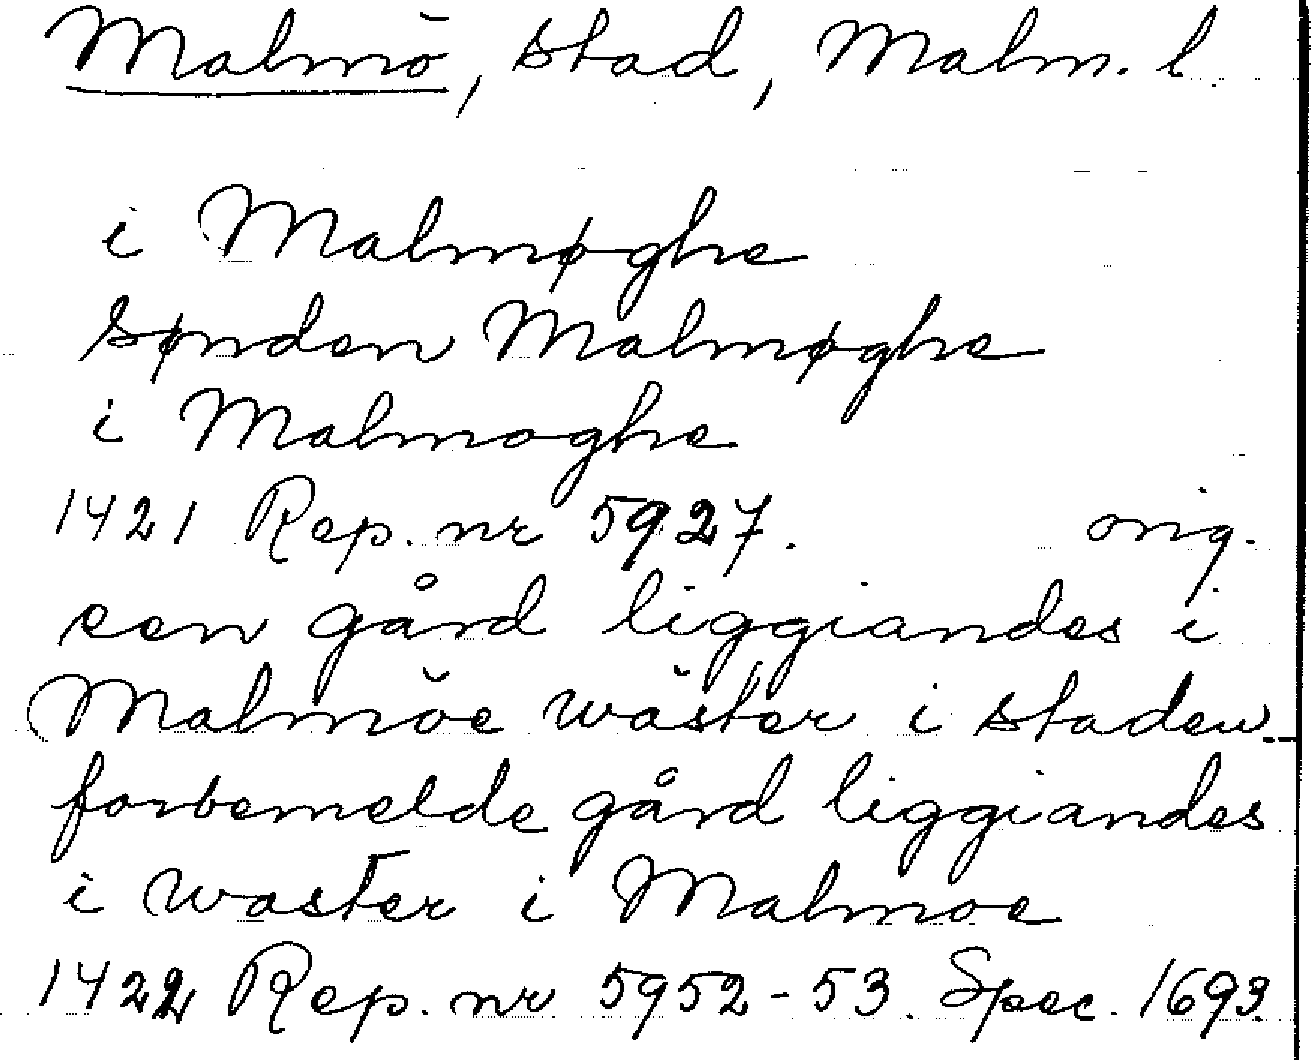 Malmö, stad, Malm. l.
i Malmøghe
Sønden Malmøghe
i Malmoghe
1421 Rep. nr 5927. orig.
een gård liggiandes i
Malmöe wäster i staden
forbemelde gård liggiandes
i waster i Malmoe
1422 Rep. nr 5952-53. Spec. 1693.